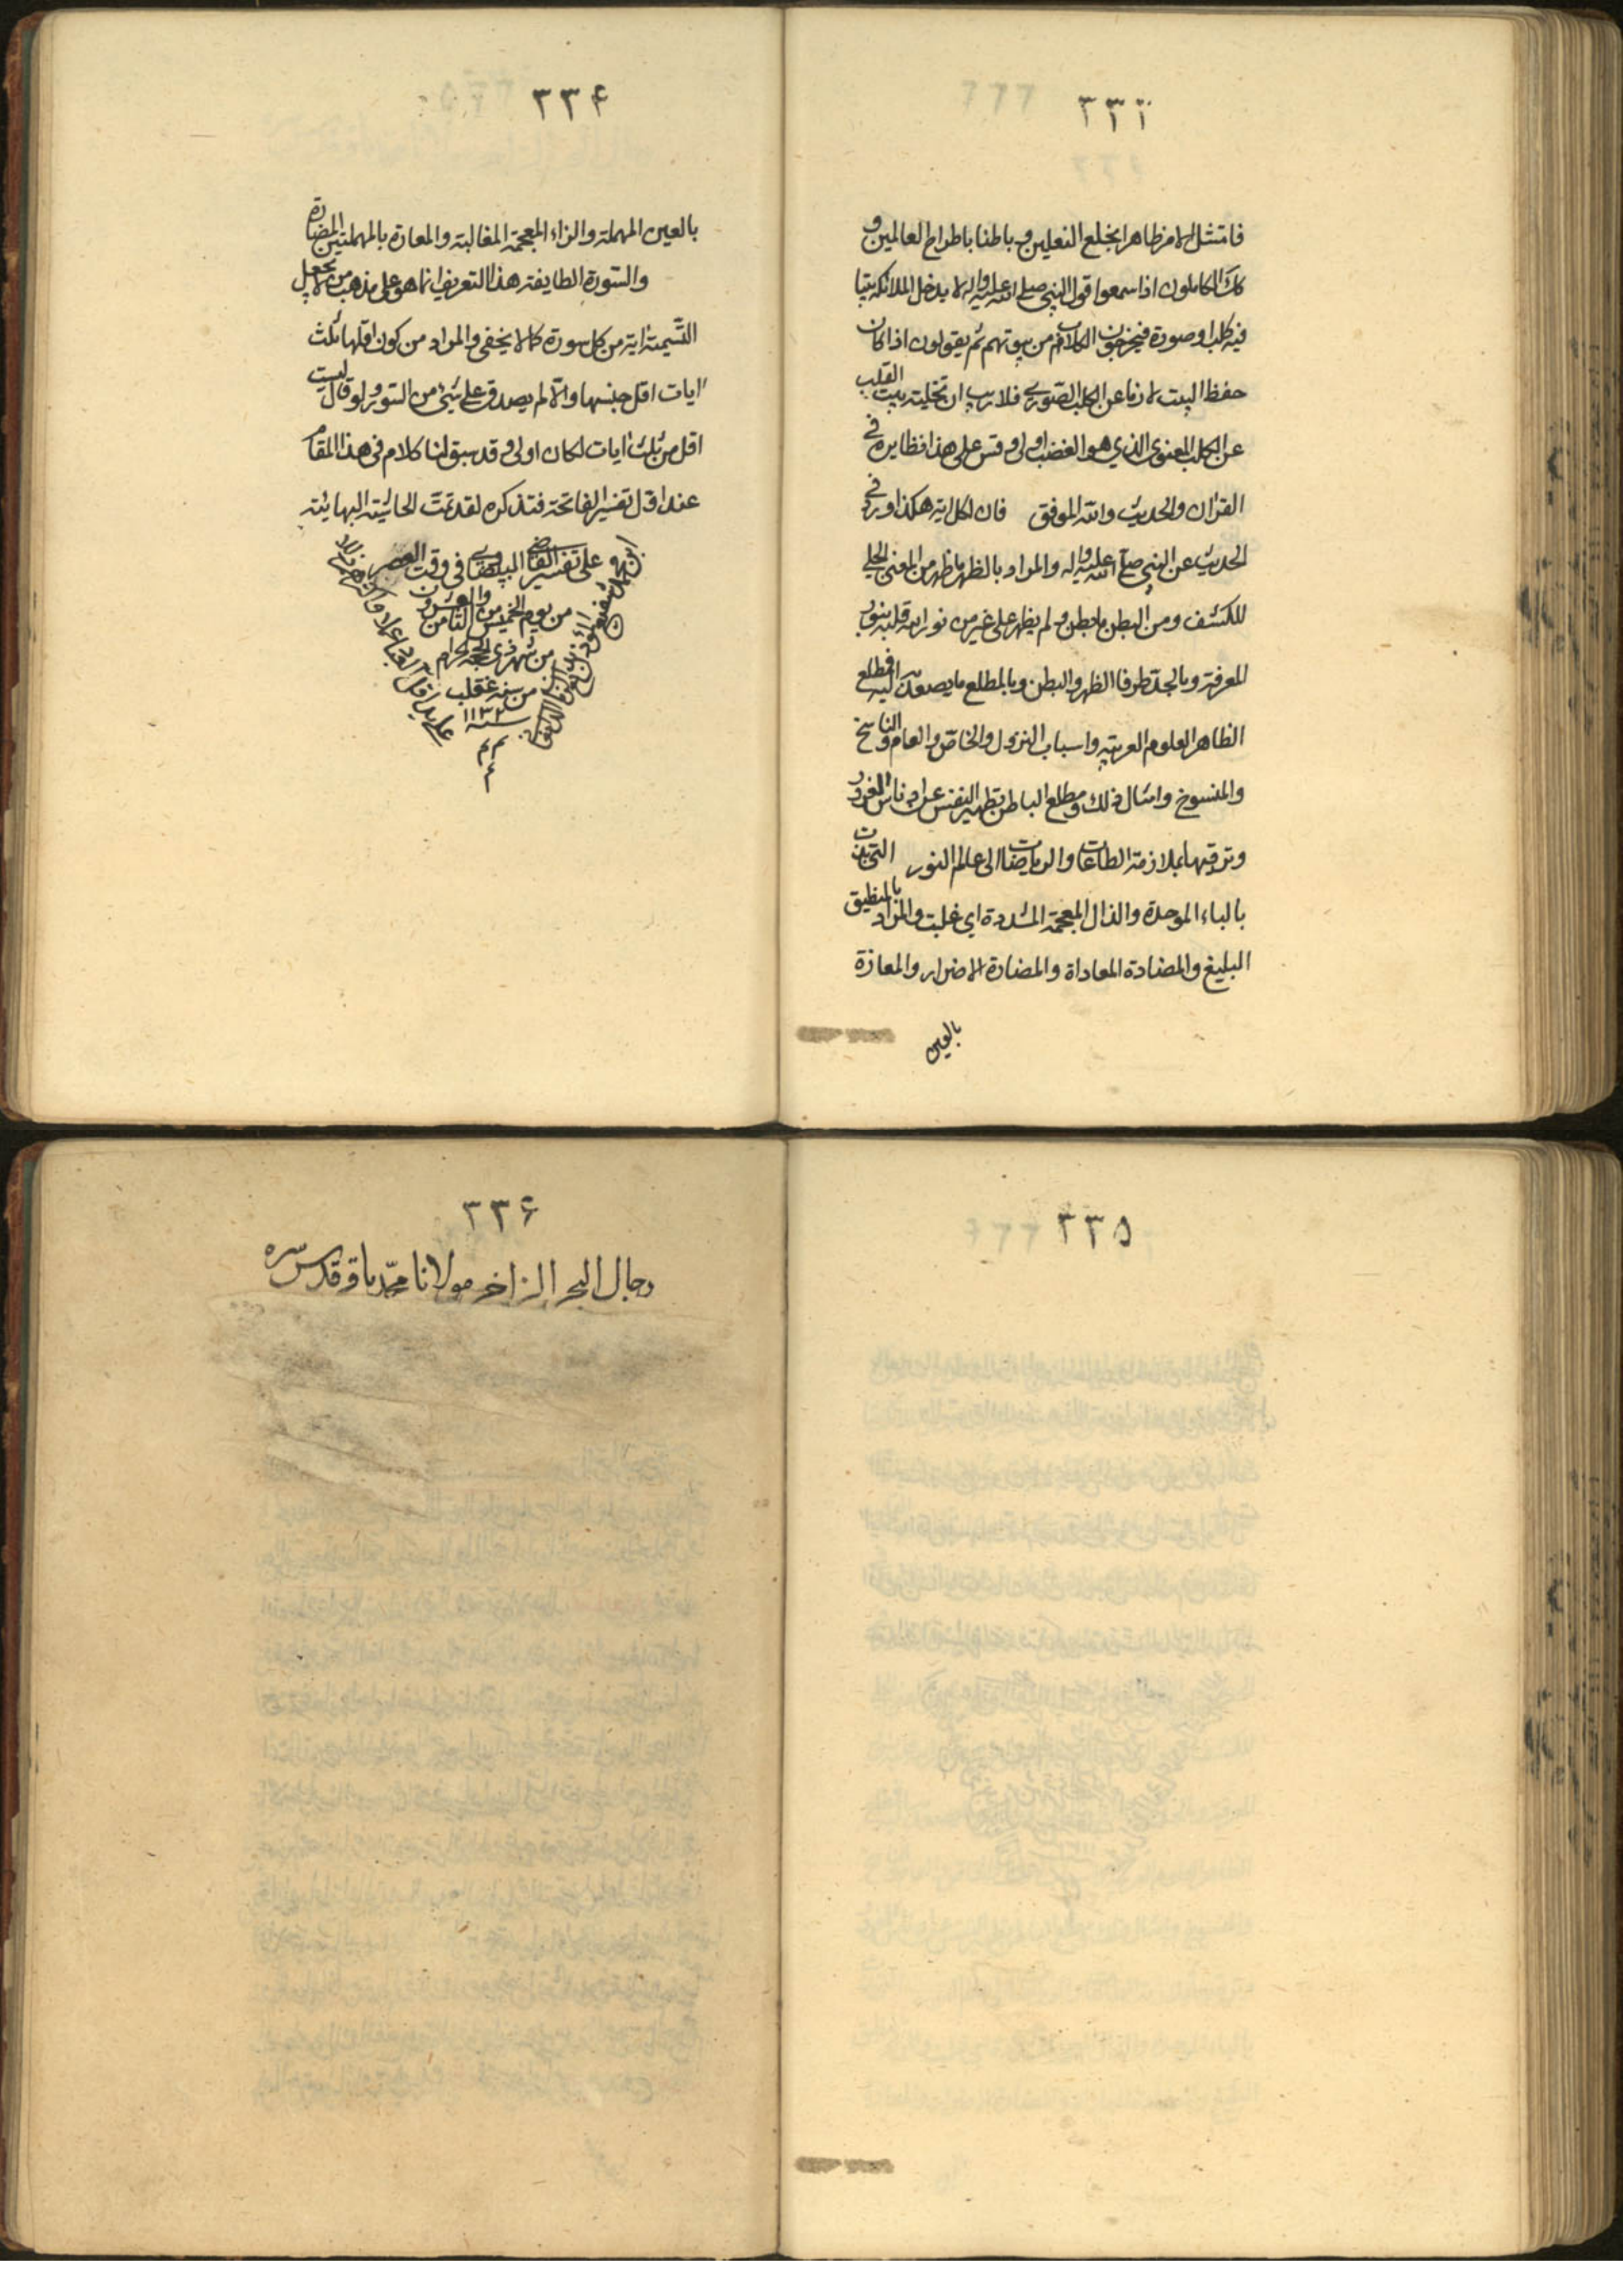 ٣٣٣
فامتثل الامر ظاهرا بخلع النعلين وباطنا باطراح العالمين و
كك الكاملون اذا سمعوا قول النبي صلى الله عليه واله لا يدخل الملائكة بيتا
فيه كلب او صورة فيخرجون الكلاب من بيوتهم ثم يقولون اذا كان
حفظ البيت لازما عن الكلب الصوري فلا ريب ان تخلية بيت القلب
عن الكلب المعنوي الذي هو الغضب اولى وقس على هذا نظايره في
القران والحديث والله الموفق فان لكل اية هكذا ورد في
الحديث عن النبي صلى الله عليه واله والمراد بالظهر ما ظهر من المعنى الجلي
للكشف ومن البطن ما بطن ولم يظهر على غير من نور الله قلبه بنور
المعرفة وبالحد طرفا الظهر والبطن وبالمطلع ما يصعد اليه فمطلع
الظاهر العلوم العربية واسباب النزول والخاص والعام والناسخ
والمنسوخ وامثال ذلك ومطلع الباطن تطهير النفس عن ادناس الغرور
وترقيها بملازمة الطاعات والرياضات الى عالم النور التي بذت
بالباء الموحدة والذال المعجمة المشددة اي غلبت والمراد بالمنطيق
البليغ والمضادة المعاداة والمضارة الاضرار والمعازة
بالعين
٣٣۴
بالعين المهملة والزاء المعجمة المغالبة والمعارة بالمهملتين المضارة
والسورة الطايفة هذا التعريف انما هو على مذهب من لا يجعل
التسمية اية من كل سورة كما لا يخفى والمراد من كون اقلها ثلث
ايات اقل جنسها والا لم يصدق على شيء من السور ولو قال ليست
اقل من ثلث ايات لكان اولى وقد سبق لنا كلام في هذا المقام
عند اول تفسير الفاتحة فتذكره لقد تمت الحاشية البهائية
على تفسير القاضي البيضاوي في وقت العصر
من يوم الخميس الثامن والعشرون
من شهر ذي الحجة الحرام
من سنة
سنة ١١٣٢
٣٣٥
٣٣۶
رجال البحر الزاخر مولانا محمد باقر قدس سره